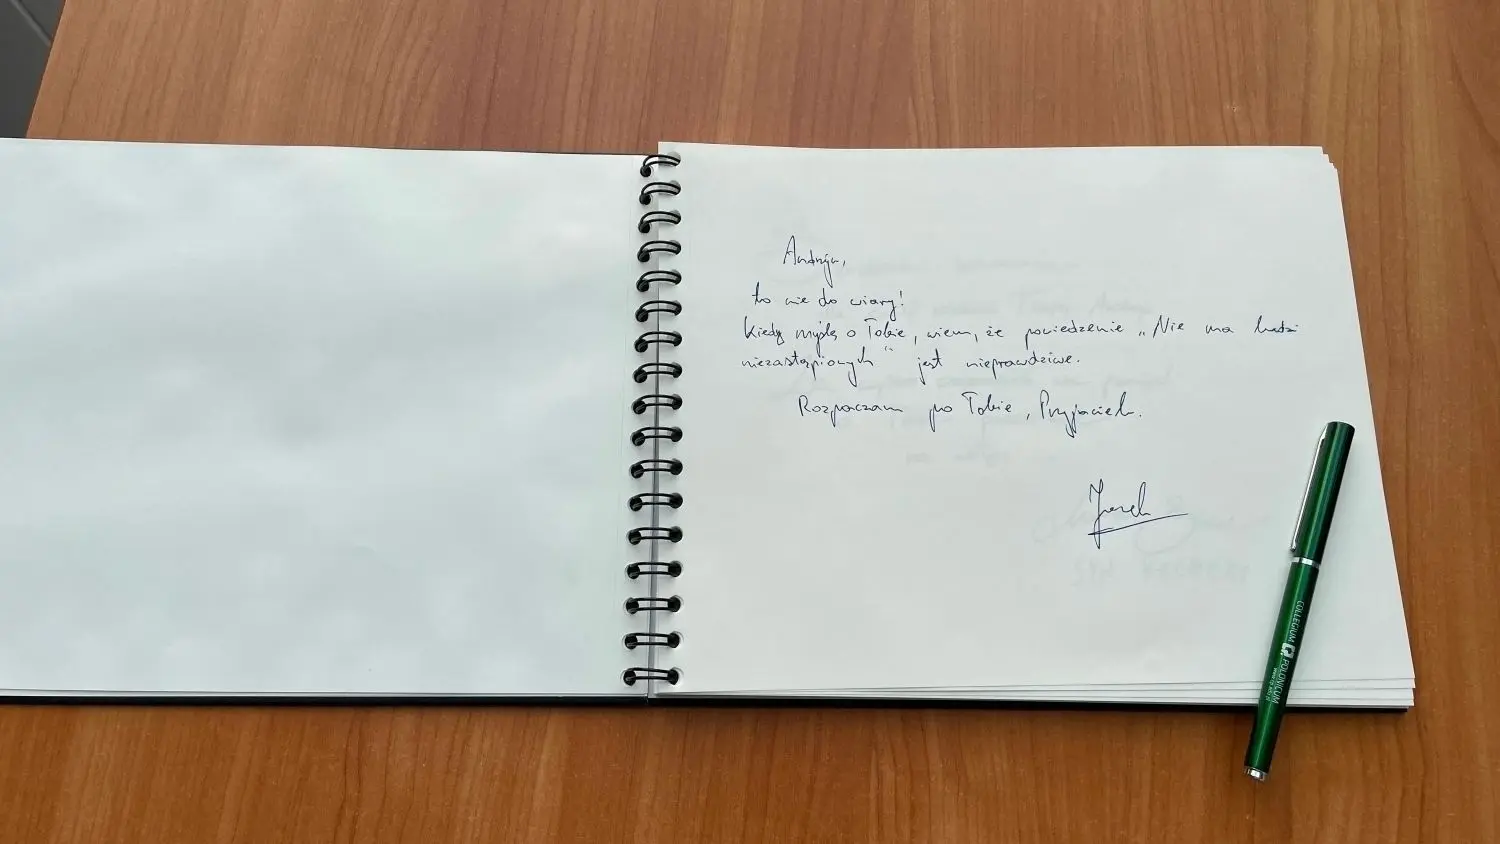 Andrzeju,
to nie do wiary!
Kiedy myślę o Tobie, wiem, że powiedzenie „Nie ma ludzi
niezastąpionych“ jest nieprawdziwe.
Rozpaczam po Tobie, Przyjacielu.
Jacek
COLLEGIUM POLONICUM